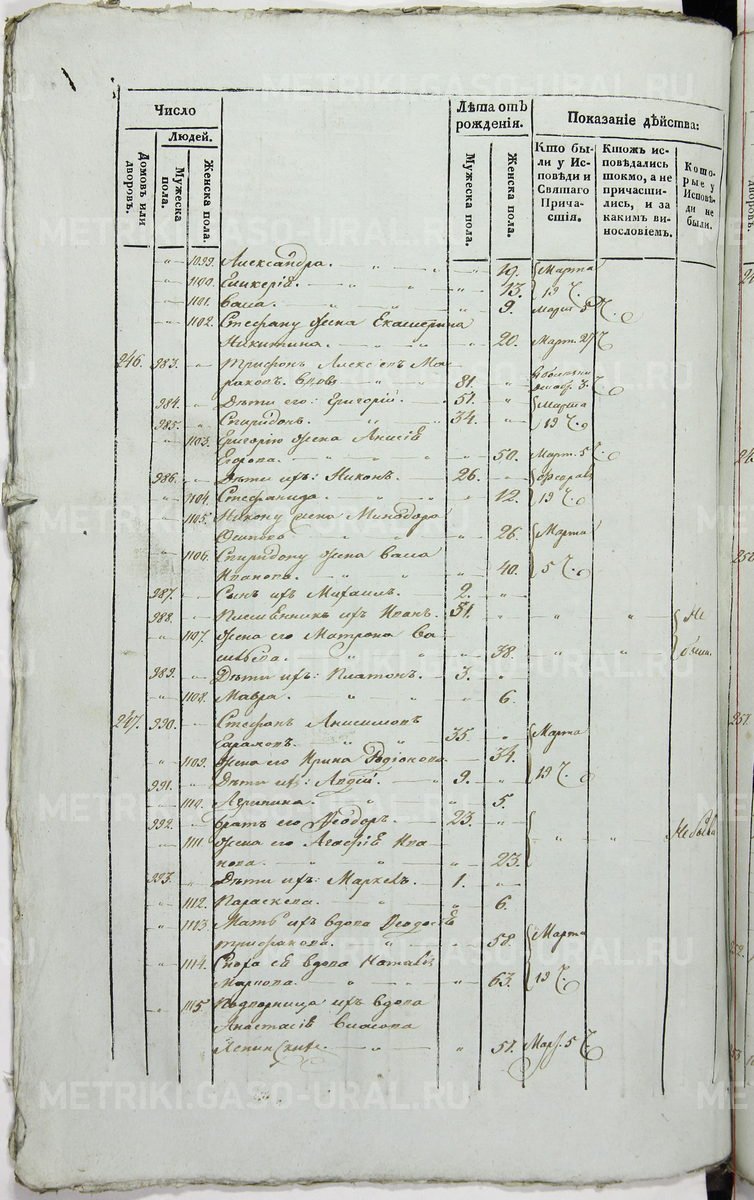 METRIKI.GASO-URAL.RU
Число
Людей.
Домовъ или дворовъ.
Мужеска пола.
Женска пола.
Лѣта отъ рожденія.
Мужеска пола.
Женска пола.
Показаніе дѣйства:
Кто бы-
ли у Ис-
повѣди и
Святаго
Прича-
стія.
Ктожъ ис-
повѣдались
токмо, а не
причасти-
лись, и за
какимъ ви-
нословіемъ.
Кото-
рые у
Исповѣ-
ди не
были.
1099. Александра. 19. Марта
1100. Гликерія. 13. 19
1101. Васса. 9. Марта 5
1102. Стефану жена Екатерина
Никитина. 20. Март. 27
246. 983. Трифонъ Алексѣевъ
вдовъ 81.
984. Дѣти его: Григорій. 57. Марта
985. Спиридонъ. 34. 19
1103. Григорію жена Анисія
Егорова. 50. Март. 5
986. Дѣти ихъ: Никонъ. 26.
1104. Стефанида. 12. 19
1105. Никону жена Минодора
Осипова 26. Марта
1106. Спиридону жена Васса
Иванова. 40. 5
987. Сынъ ихъ Михаилъ. 2.
988. Племянникъ ихъ Иванъ. 51. Не
1107. Жена его Матрона Ва-
сильева. 38. были.
989. Дѣти ихъ: Платонъ. 3.
1108. Мавра. 6.
247. 990. Стефанъ Анисимовъ
35. Марта
1109. Жена его Ирина Родіонова. 34.
991. Дѣти ихъ: 9. 19
1110. Агрипина. 5.
992. Братъ его Ѳеодоръ. 23.
1111. Жена его Агафія Ива-
нова. 23.
993. Дѣти ихъ: Маркелъ. 1.
1112. Параскева. 6.
1113. Мать ихъ вдова Ѳеодосія
Трифонова. 58. Марта
1114. Сноха ея вдова Наталія
63. 19
1115. Подворница ихъ вдова
Анастасія
57. Мар. 5